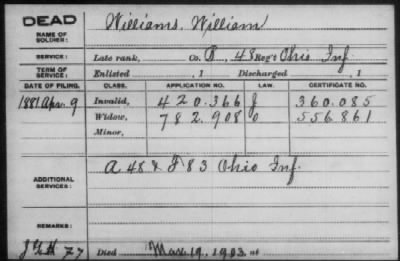 DEAD
NAME OF SOLDIER: Williams, William
SERVICE: Late rank, Co. B, 48 Reg't Ohio Inf
TERM OF SERVICE: Enlisted , 1 Discharged , 1
DATE OF FILING. CLASS. APPLICATION NO. LAW. CERTIFICATE NO.
1881 Apr. 9 Invalid, 420.366 J 360.085
Widow, 782.908 O 556.861
Minor,
ADDITIONAL SERVICES: A 48 & F 83 Ohio Inf.
REMARKS:
77 Died Mar. 19, 1903, at